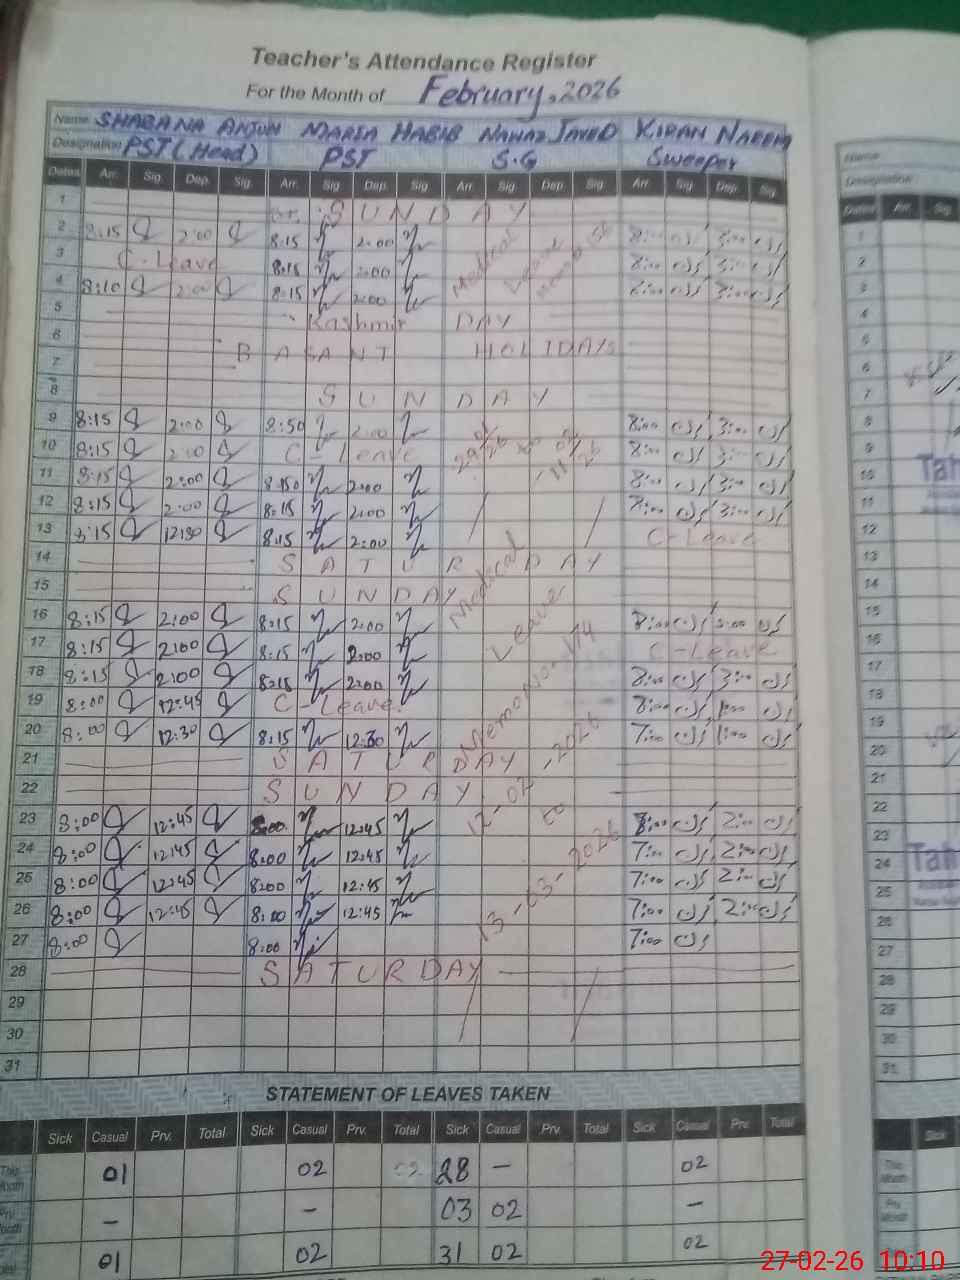 Teacher's Attendance Register
For the Month of February, 2026
Name SHABANA ANJUM MARIA HABIB NAWAZ JAVED KIRAN NAEEM
Designation PST (Head) PST S.G Sweeper
Dates Arr. Sig. Dep. Sig. Arr. Sig Dep. Sig Arr. Sig. Dep. Sig. Arr. Sig. Dep. Sig.
1 SUNDAY
2 8:15 2:00 8:15 2:00 Medical Leave 8:00 3:00
3 C-Leave 8:15 2:00 8:00 3:00
4 8:10 2:00 8:15 2:00 8:00 3:00
5 Kashmir DAY
6
7 BASANT HOLIDAYS
8 SUNDAY
9 8:15 2:00 8:50 2:00 8:00 3:00
10 8:15 2:00 C-Leave 8:00 3:00
11 8:15 2:00 8:50 2:00 8:00 3:00
12 8:15 2:00 8:15 2:00 8:00 3:00
13 8:15 12:30 8:15 2:00 C-Leave
14 SATURDAY
15 SUNDAY
Medical Leave Memo No. 174
16 8:15 2:00 8:15 2:00 8:00 3:00
17 8:15 2:00 8:15 2:00 C-Leave
18 8:15 2:00 8:15 2:00 8:00 3:00
19 8:00 12:45 C-Leave. 8:00 1:00
20 8:00 12:30 8:15 12:30 7:00 1:00
21 SATURDAY
22 SUNDAY
12-02-2026 to 13-03-2026
23 8:00 12:45 8:00 12:45 8:00 2:00
24 8:00 12:45 8:00 12:45 7:00 2:00
25 8:00 12:45 8:00 12:45 7:00 2:00
26 8:00 12:45 8:00 12:45 7:00 2:00
27 8:00 8:00 7:00
28 SATURDAY
29
30
31
STATEMENT OF LEAVES TAKEN
Sick Casual Prv. Total Sick Casual Prv. Total Sick Casual Prv. Total Sick Casual Prv. Total
This Month 01 02 02 28 - 02
Prv Month - - 03 02 -
Total 01 02 31 02 02
27-02-26 10:10